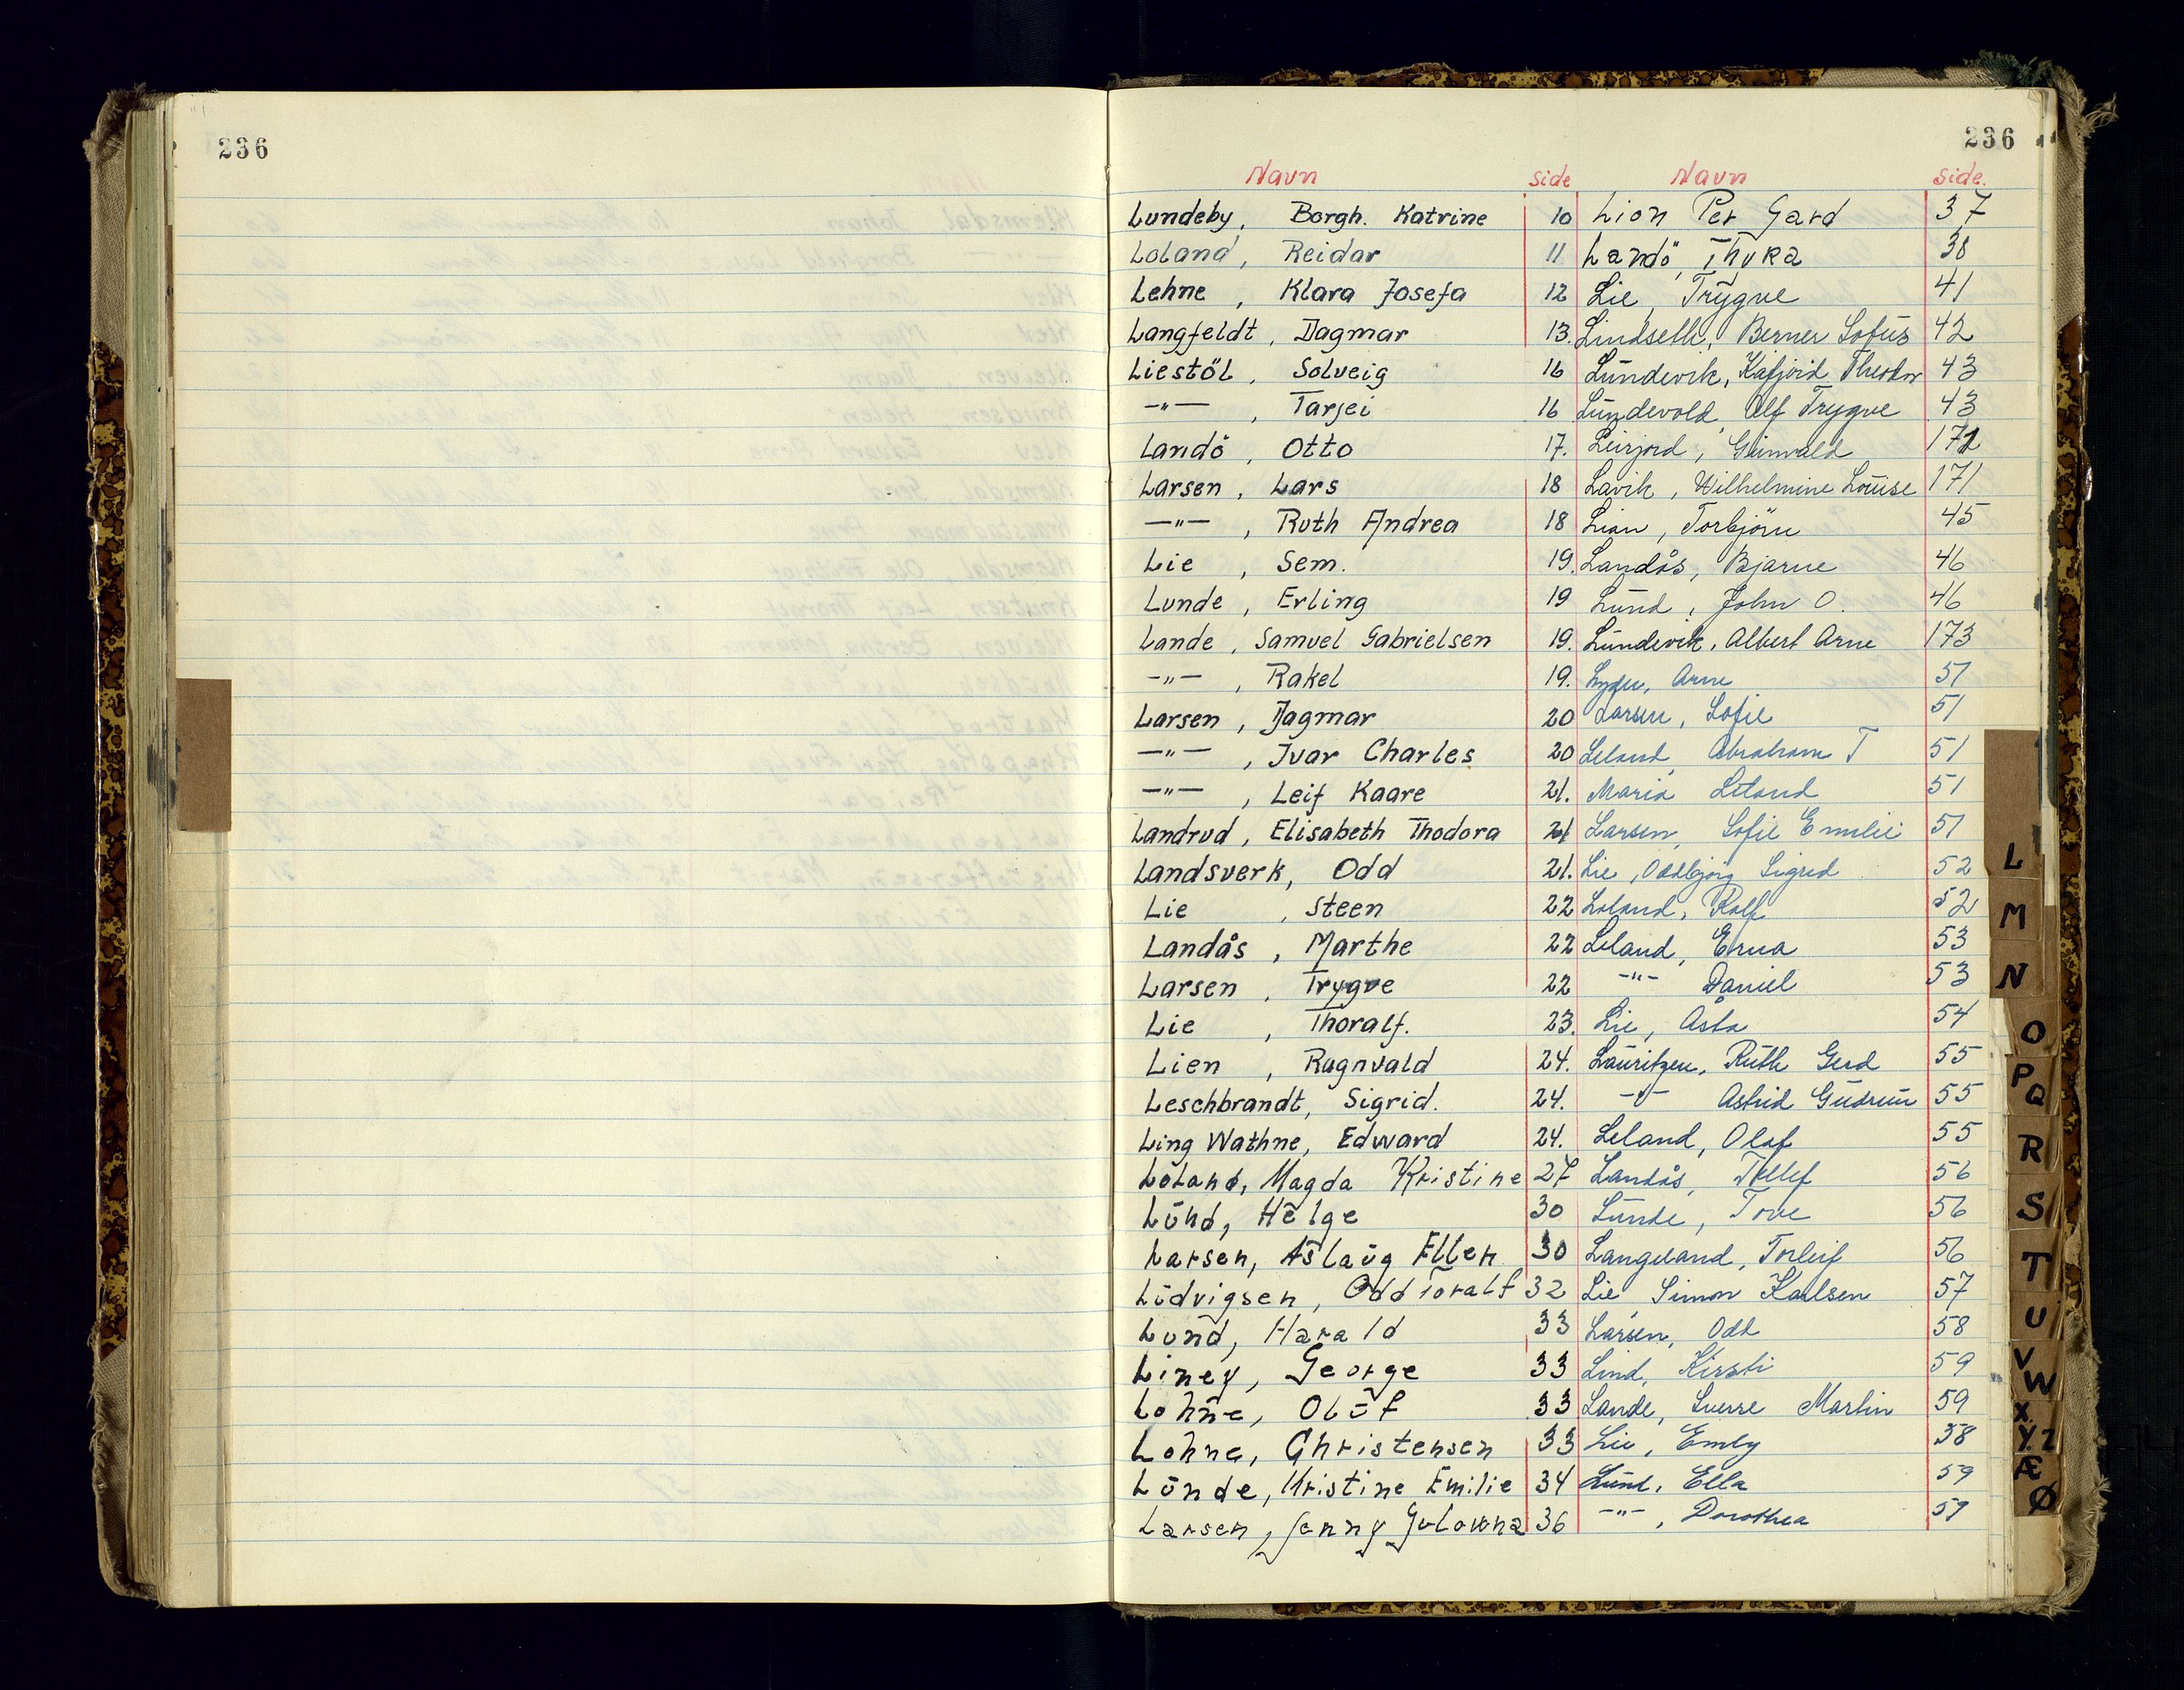 236
236
Navn side Navn side.
Lundeby, Borgh. Katrine 10 Lion Per Gard 37
Loland, Reidar 11 Landö, Thora 38
Lehne, Klara Josefa 12 Lie, Trygve 41
Langfeldt, Dagmar 13. Lindseth, Berner Sofus 42
Liestöl, Solveig 16 Lundevik, Kåfjord Theodor 43
—"— , Tarjei 16 Lundevold, Alf Trygve 43
Landö, Otto 17. Leirjord, Gunvald 172
Larsen, Lars 18 Lavik, Wilhelmine Louise 171
—"— , Ruth Andrea 18 Lian, Torbjörn 45
Lie, Sem. 19. Landås, Bjarne 46
Lunde, Erling 19 Lund, John O. 46
Lande, Samuel Gabrielsen 19. Lundevik, Albert Arne 173
—"— , Rakel 19. Arne 51
Larsen, Dagmar 20 Larsen, Sofie 51
—"— , Ivar Charles 20 Leland, Abraham T 51
—"— , Leif Kaare 21. Maria Leland 51
Landrud, Elisabeth Thodora 21 Larsen, Sofie Emilie 51
Landsverk, Odd 21. Lie, Oddbjörg Sigrid 52
Lie, Steen 22 Loland, Rolf 52
Landås, Marthe 22 Leland, Erna 53
Larsen, Trygve 22 —"— Daniel 53
Lie, Thoralf. 23. Lie, Åsta 54
Lien, Ragnvald 24. Lauritzen, Ruth Gerd 55
Leschbrandt, Sigrid. 24. —"— Astrid Gudrun 55
Ling Wathne, Edward 24. Leland, Olaf 55
Loland, Magda Kristine 27 Landås, Tellef 56
Lund, Helge 30 Lunde, Tove 56
Larsen, Aslaug Ellen 30 Langeland, Torleif 56
Ludvigsen, Odd Toralf 32 Lie, Simon Karlsen 57
Lund, Harald 33 Larsen, Odd 58
Liney, George 33 Lind, Kirsti 59
Lohne, Oluf 33 Lande, Sverre Martin 59
Lohne, Christensen 33 Lie, Emly 58
Lunde, Kristine Emilie 34 Lund, Ella 59
Larsen, Jenny Gulowna 36 —"— , Dorothea 59
L
M
N
O
P
Q
R
S
T
U
V
W
X
Y. Z
Æ
Ø